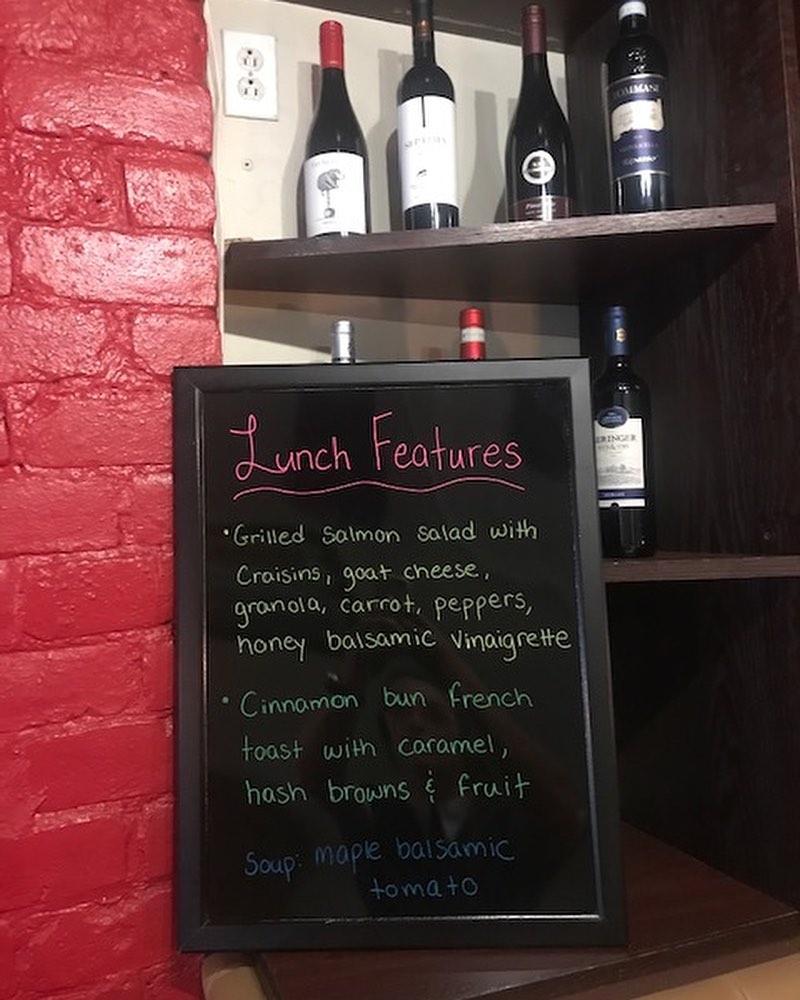 TOMMASI
Lunch Features
• Grilled salmon salad with
Craisins, goat cheese,
granola, carrot, peppers,
honey balsamic vinaigrette
• Cinnamon bun French
toast with caramel,
hash browns & fruit
Soup: maple balsamic
tomato